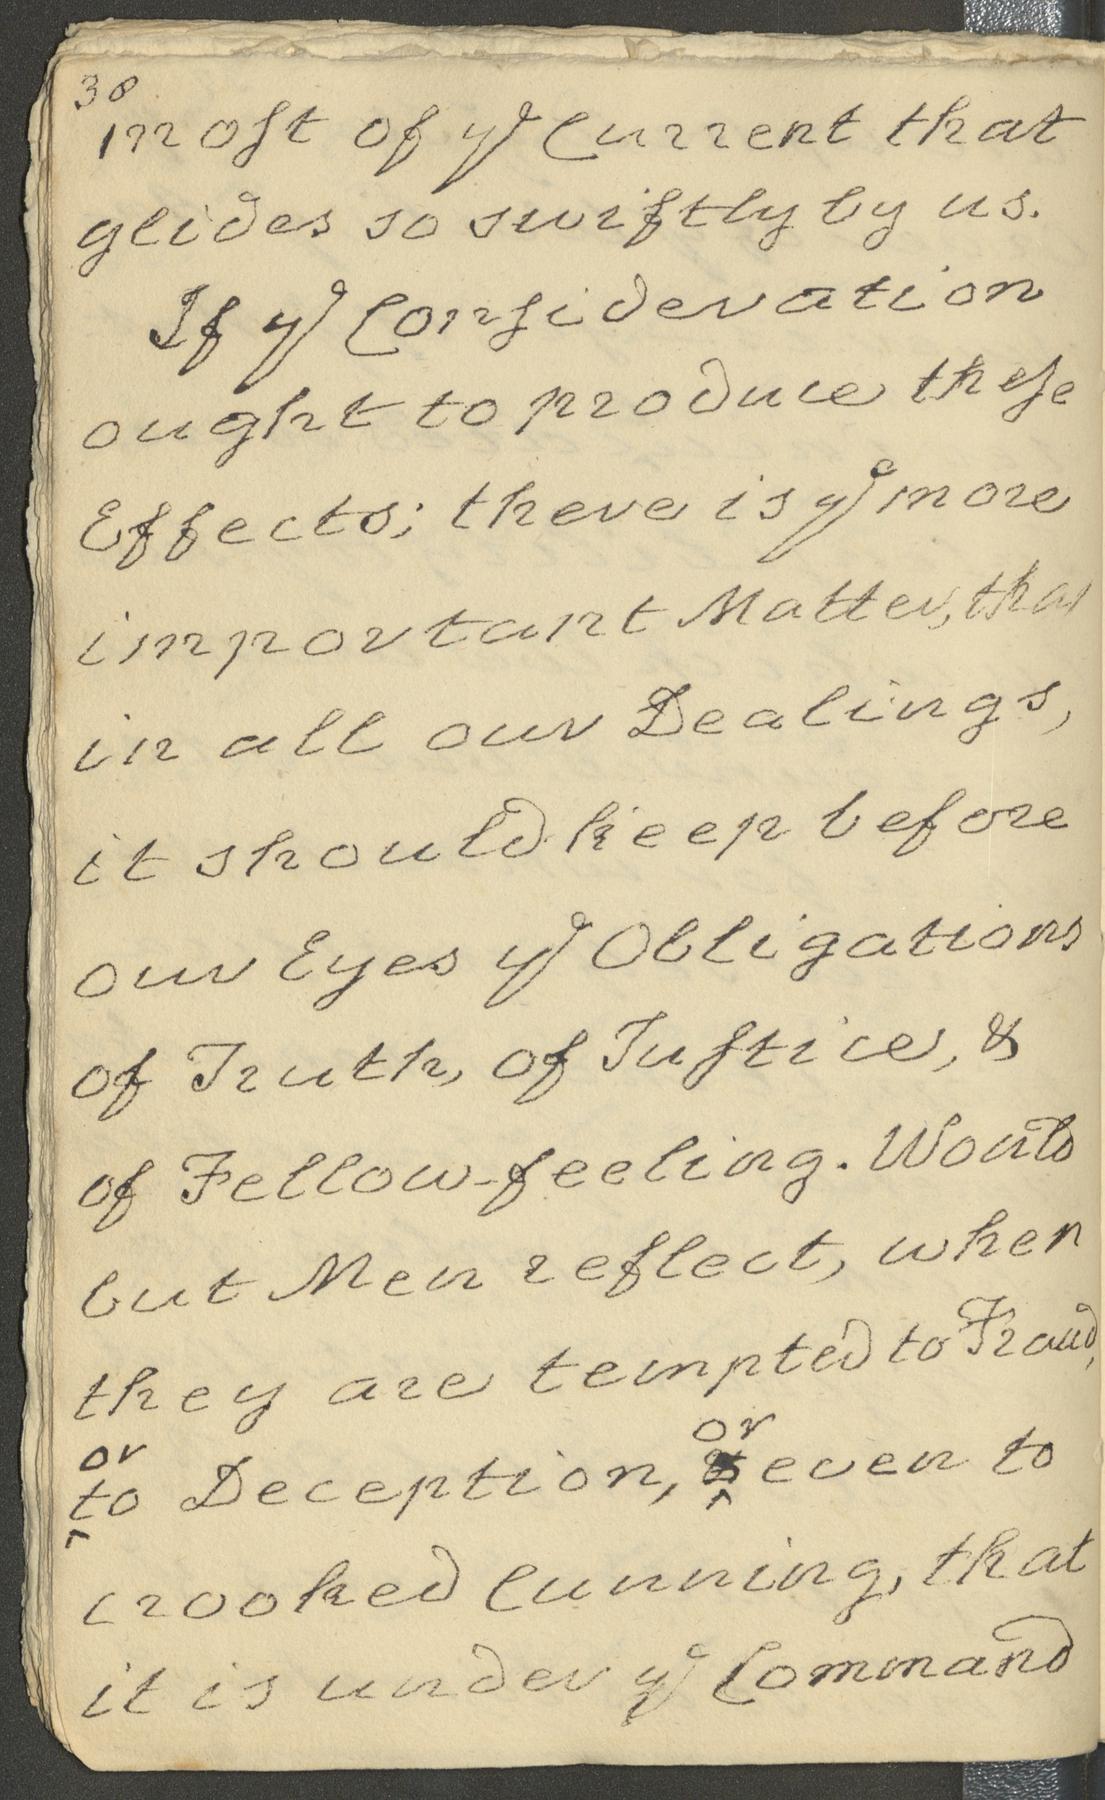 38
most of yᵉ Current that
glides so swiftly by us.
If yᵉ Consideration
ought to produce these
Effects; there is yᵉ more
important Matter, that
in all our Dealings,
it should keep before
our Eyes yᵉ Obligations
of Truth, of Justice, &
of Fellow-feeling. Would
but Men reflect, when
they are tempted to Fraud,
or to Deception, or even to
crooked Cunning, that
it is under yᵉ Command